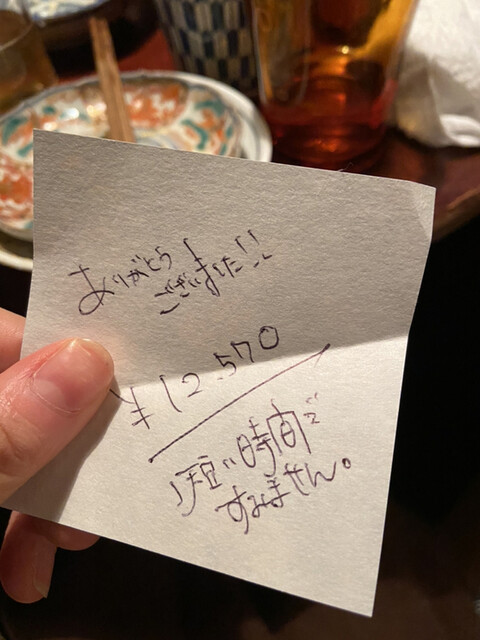 ありがとう
ございました!!
¥12.570
短い時間で
すみません。